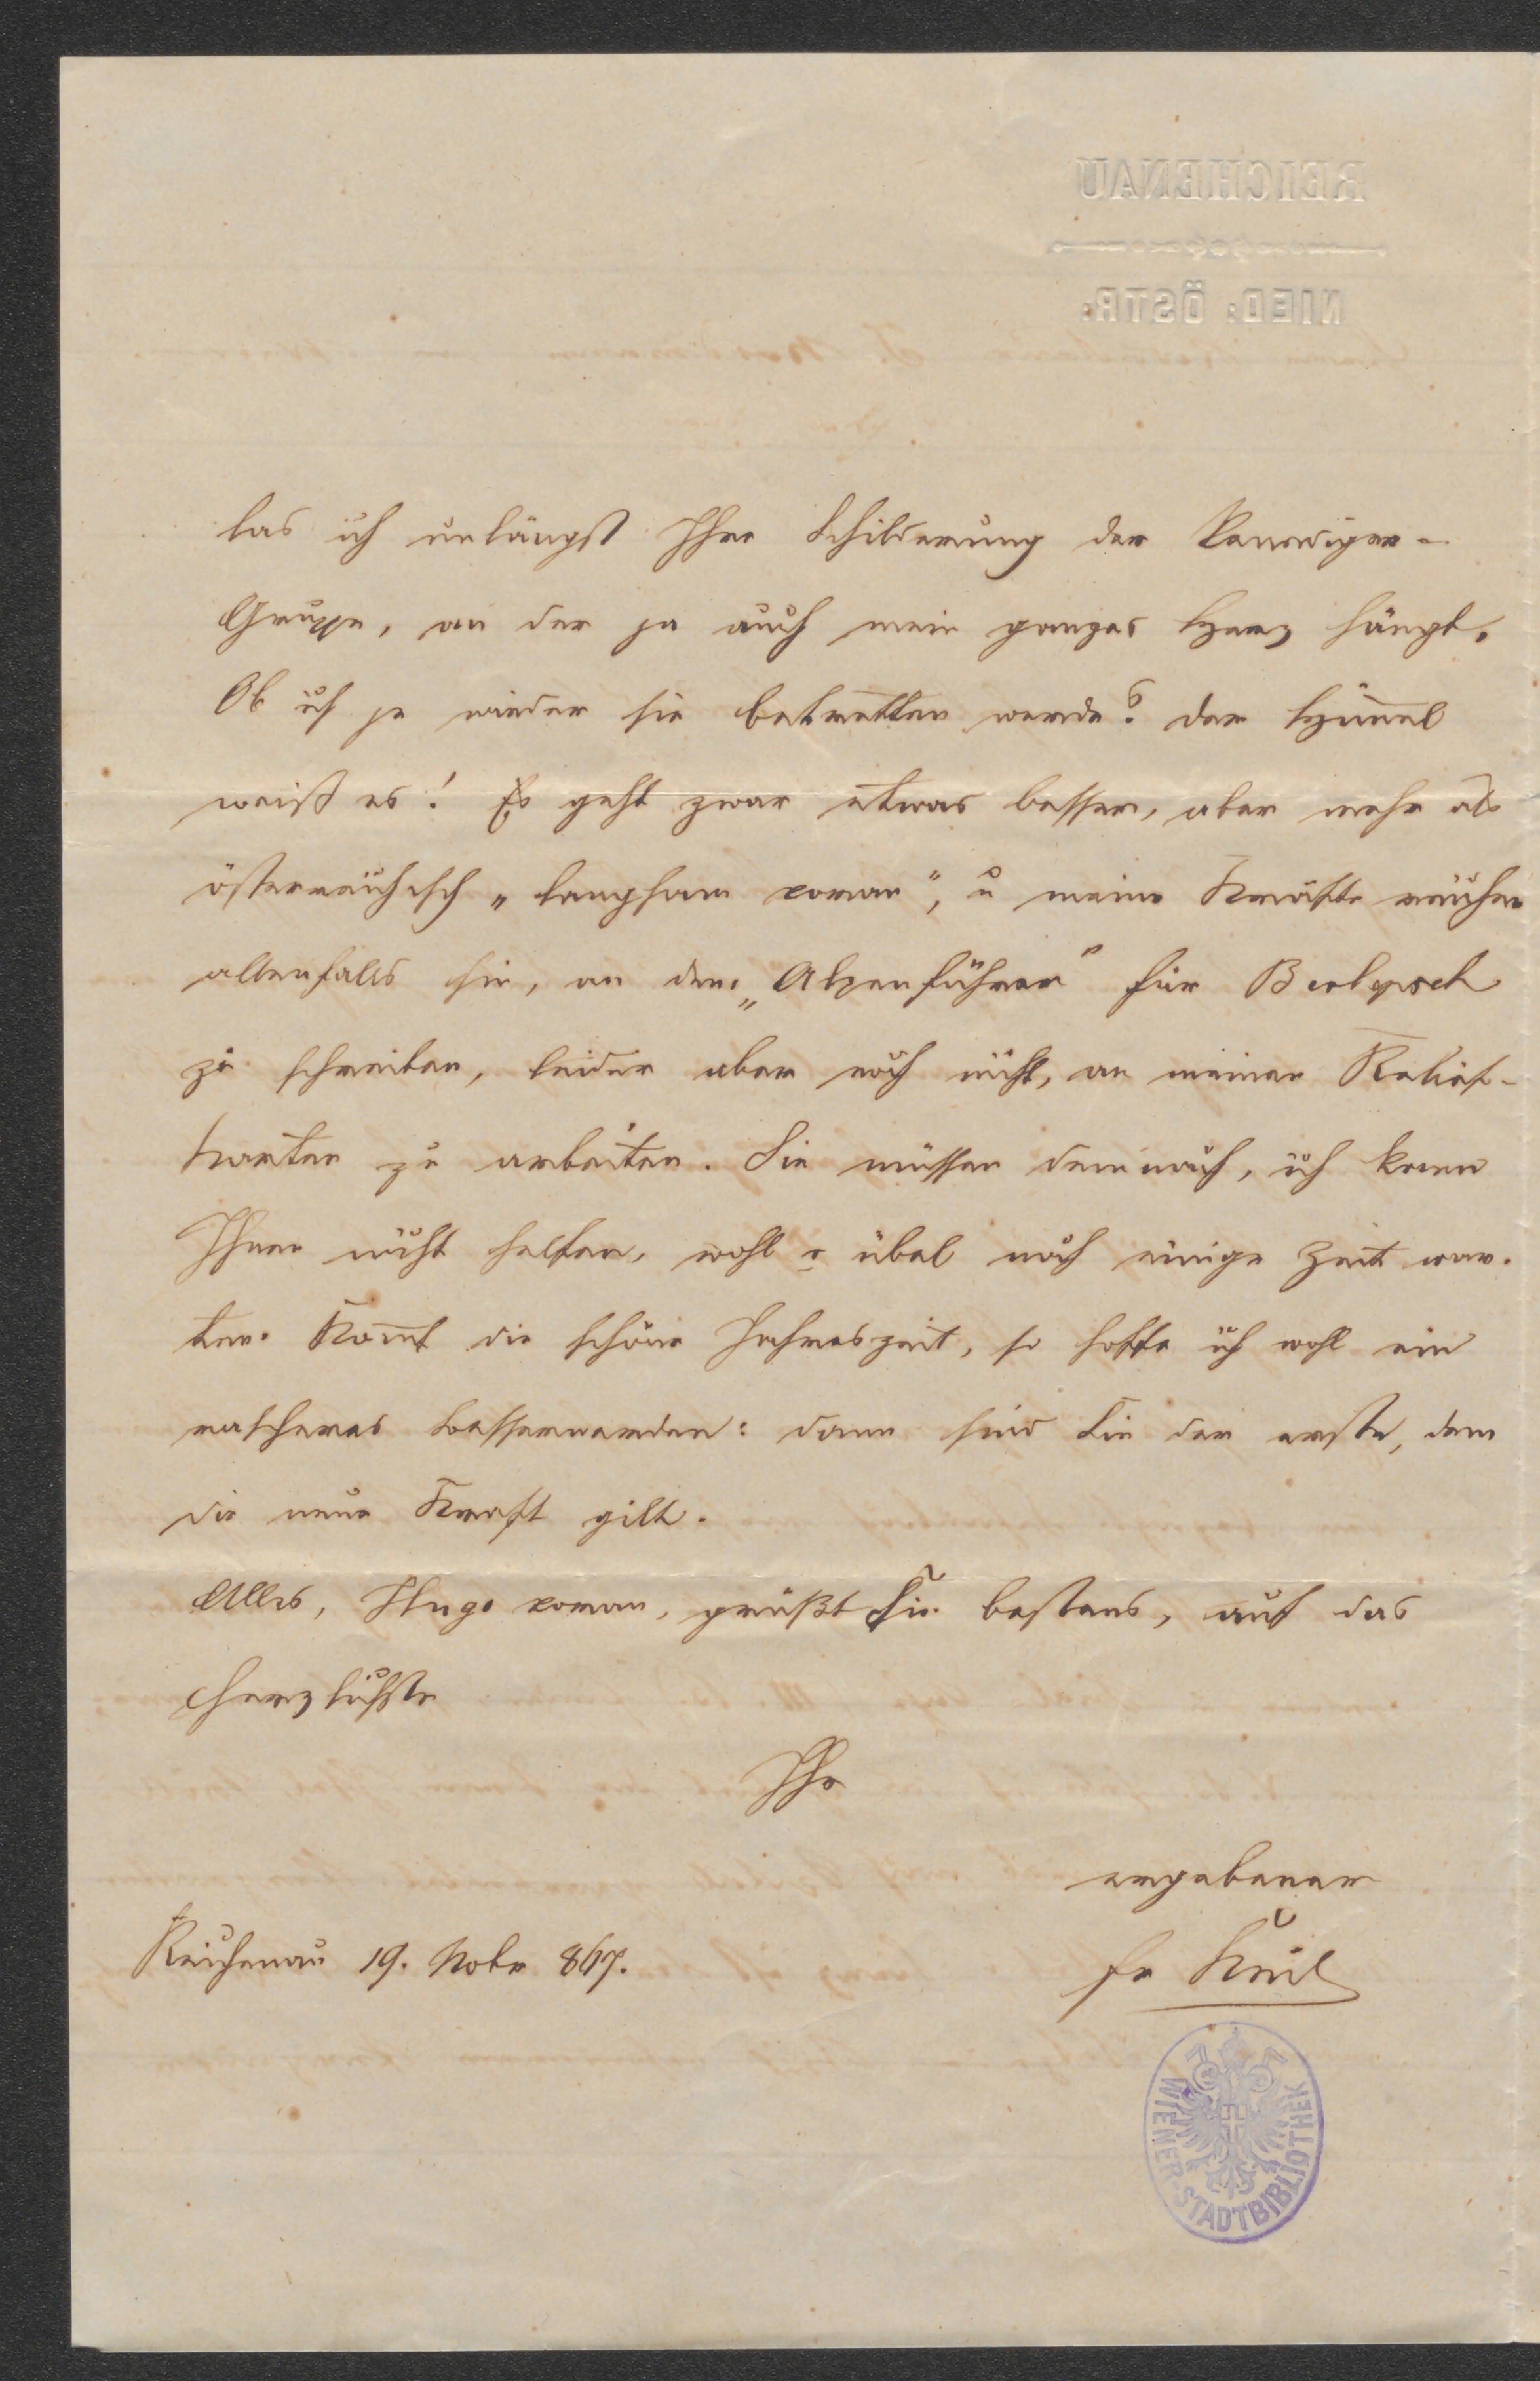 REICHENAU
NIED: ÖSTR:
las ich unlängst Ihre Schilderung der Venediger-
Gruppe, an der ja auch mein ganzes Herz hängt.
Ob ich je wieder sie betretten werde? der Him̄el
weiß es! Es geht zwar etwas besser, aber mehr als
österreichisch „langsam voran“, u meine Kräfte reichen
allenfalls hin, an dem „Alpenführer“ für Berlepsch
zu schreiben, leider aber noch nicht, an meinen Relief-
karten zu arbeiten. Sie müssen demnach, ich kann
Ihnen nicht helfen, wohl o übel noch einige Zeit war-
ten. Kom̄t die schöne Jahreszeit, so hoffe ich wohl ein
rascheres Besserwerden: dann sind Sie der erste, dem
die neue Kraft gilt.
Alles, Hugo voran, grüßt Sie bestens, auf das
herzlichste
Ihr
ergebener
Fr Keil
Reichenau 19. Nobr 867.
WIENER STADTBIBLIOTHEK